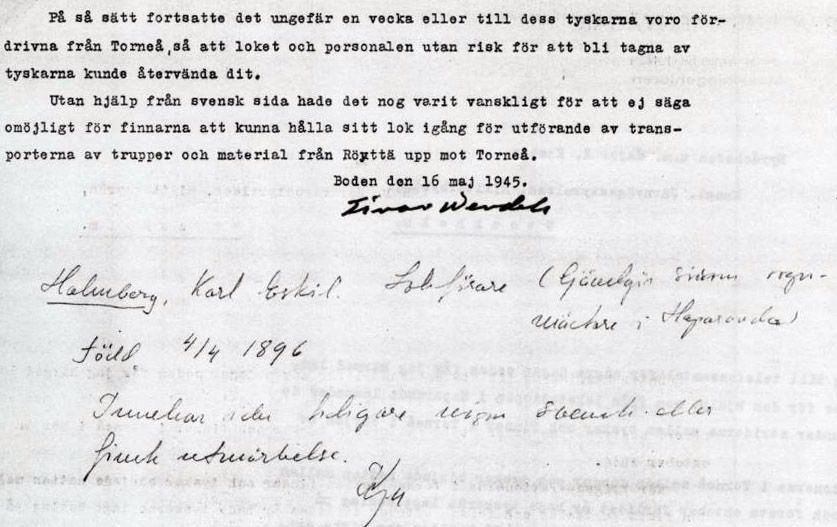 På så sätt fortsatte det ungefär en vecka eller till dess tyskarna voro för-
drivna från Torneå, så att loket och personalen utan risk för att bli tagna av
tyskarna kunde återvända dit.
Utan hjälp från svensk sida hade det nog varit vanskligt för att ej säga
omöjligt för finnarna att kunna hålla sitt lok igång för utförande av trans-
porterna av trupper och material från Röyttä upp mot Torneå.
Boden den 16 maj 1945.
Holmberg, Karl Eskil. Lokförare (
i Haparanda)
Född 4/4 1896
Innehar tidigare svensk eller
finsk utmärkelse.